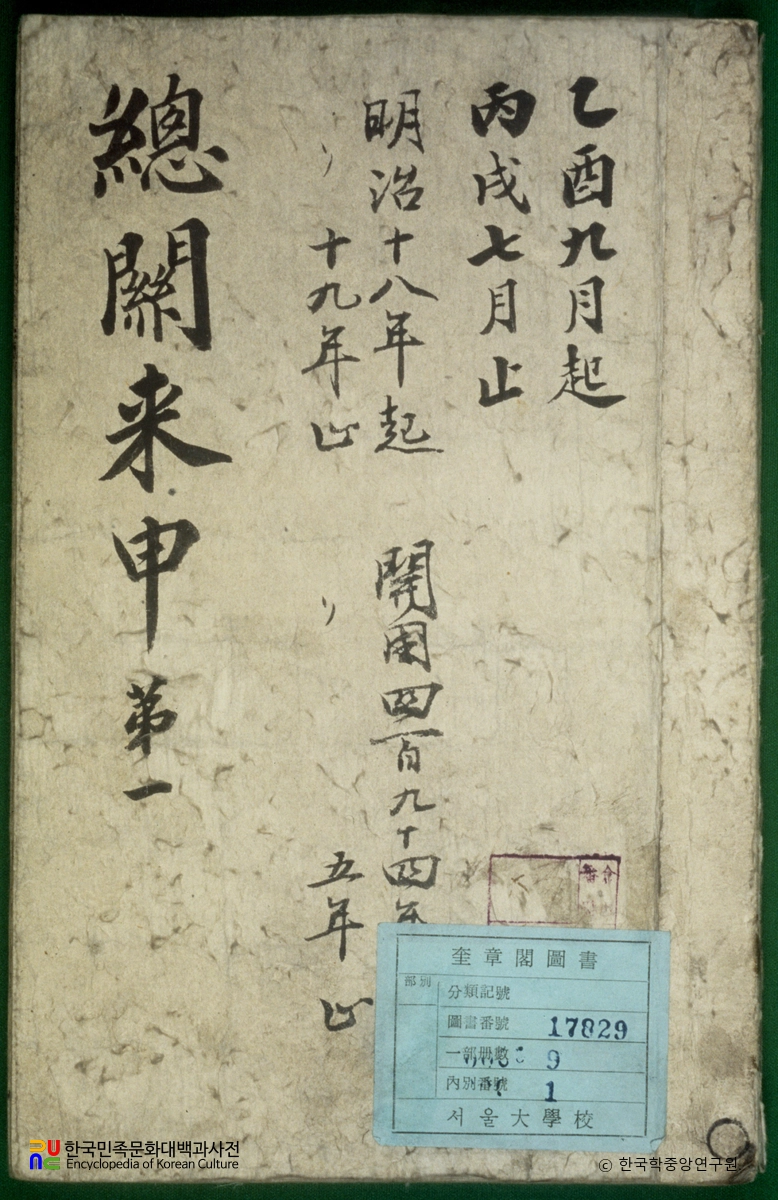 乙酉九月起
丙戌七月止
明治十八年起
〃 十九年止
開国四百九十四年
〃 五年止
總關来申 第一
奎章閣圖書
部別
分類記號
圖書番號 17829
一部册數 9
內別番號 1
서울大學校
한국민족문화대백과사전
Encyclopedia of Korean Culture
© 한국학중앙연구원